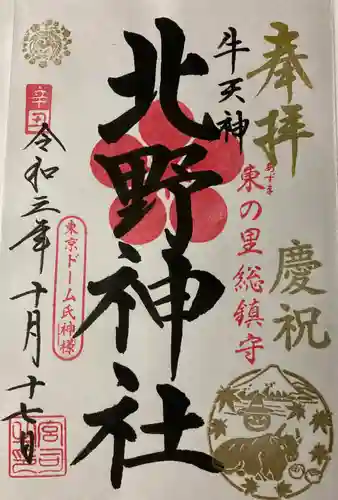 奉拝
慶祝
あずま
東の里総鎮守
牛天神
北野神社
東京ドーム氏神様
辛丑
令和三年十月十七日